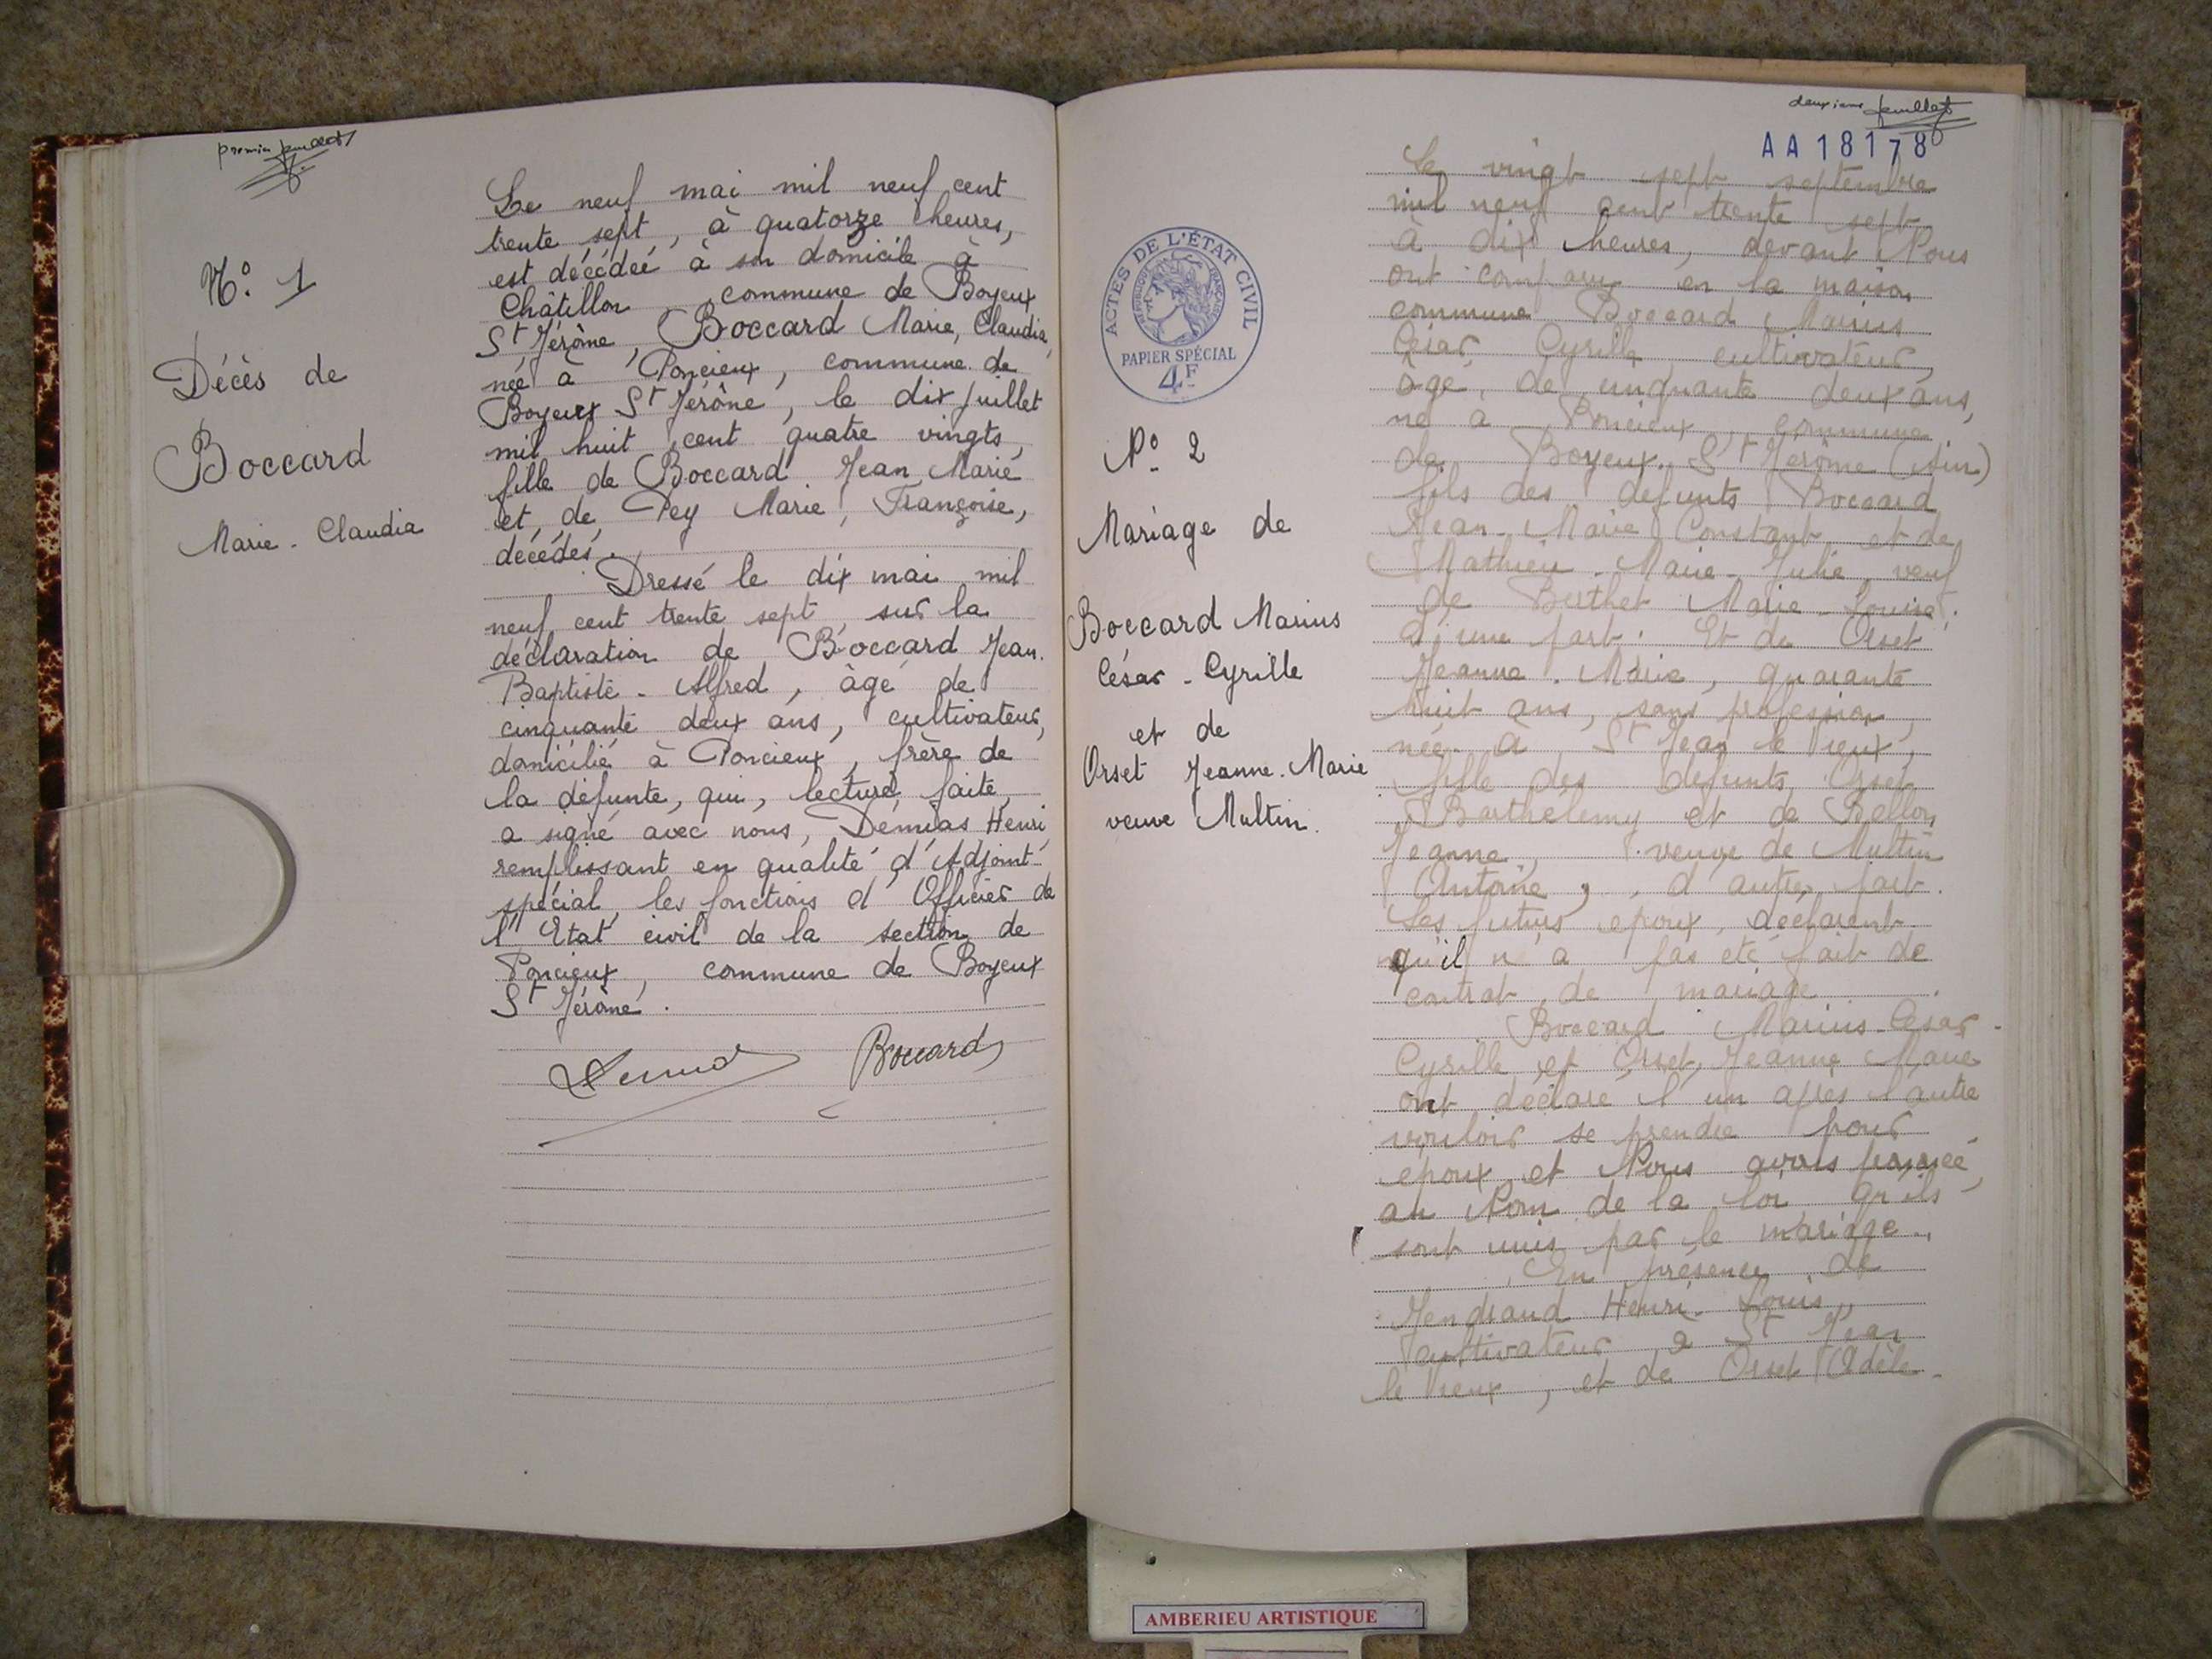 premier feuillet
N° 1
Décès de
Boccard
Marie - Claudia
Le neuf mai mil neuf cent
trente sept, à quatorze heures,
est décédée à son domicile à
Châtillon, commune de Boyeux
St Jérôme, Boccard Marie, Claudia,
née à Poncieux, commune de
Boyeux St Jérôme, le dix juillet
mil huit cent quatre vingts,
fille de Boccard Jean Marie
et de Pey Marie, Françoise,
décédés.
Dressé le dix mai mil
neuf cent trente sept, sur la
déclaration de Boccard Jean.
Baptiste - Alfred, âgé de
cinquante deux ans, cultivateur,
domicilié à Poncieux, frère de
la défunte, qui, lecture faite,
a signé avec nous, Demias Henri
remplissant en qualité d'Adjoint
spécial les fonctions d'Officier de
l'Etat civil de la section de
Poncieux, commune de Boyeux
St Jérôme.
Boccard
deuxième feuillet
AA18178
ACTES DE L'ÉTAT CIVIL
RÉPUBLIQUE FRANÇAISE
PAPIER SPÉCIAL
4F
N° 2
Mariage de
Boccard Marius
César - Cyrille
et de
Orset Jeanne. Marie
veuve Multin.
Le vingt sept septembre
mil neuf cent trente sept
à dix heures, devant Nous
ont comparu en la maison
commune Boccard Marius
César Cyrille, cultivateur,
âgé, de cinquante deux ans,
né à Poncieux commune
de Boyeux. St Jérôme (Ain)
fils des défunts Boccard
Jean - Marie Constant et de
Mathieu - Marie - Julie, veuf
de Berthet Marie - Louise;
d'une part. Et de Orset
Jeanne. Marie, quarante
huit ans, sans profession,
née à St Jean le Vieux,
fille des défunts Orset
Barthélemy et de Bellon
Jeanne, veuve de Multin
Antoine, d'autre part.
Les futurs époux déclarent
qu'il n'a pas été fait de
contrat de mariage.
Boccard Marius - César -
Cyrille et Orset Jeanne Marie
ont déclaré l'un après l'autre
vouloir se prendre pour
époux et Nous avons prononcé
au Nom de la loi qu'ils
sont unis par le mariage.
En présence de
Jendraud Henri - Louis,
cultivateur à St Jean
le Vieux, et de Orset Adèle -
AMBERIEU ARTISTIQUE